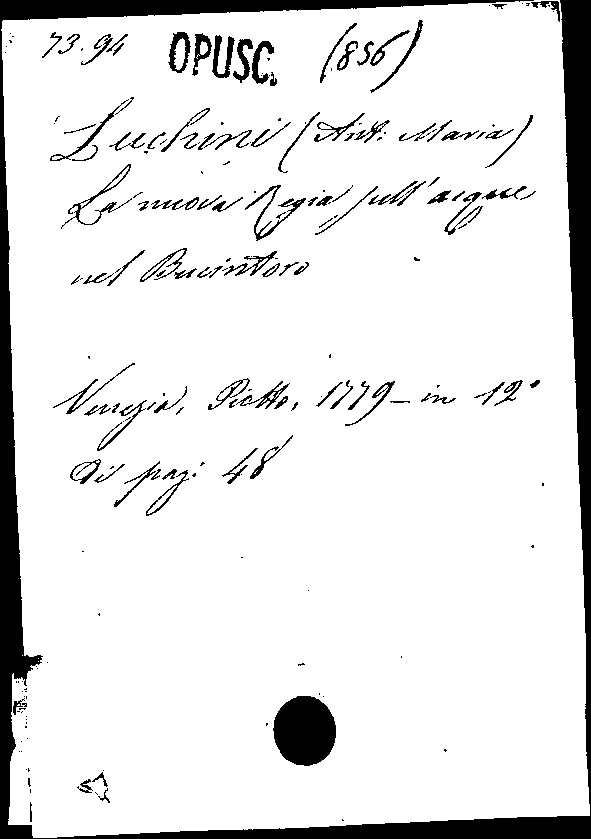 73.94 OPUSC. (856)
Luchini (Ant: Maria)
La nuova Regia sull'acque
nel Bucintoro
Venezia, 1779 - in 12°
di pag: 48